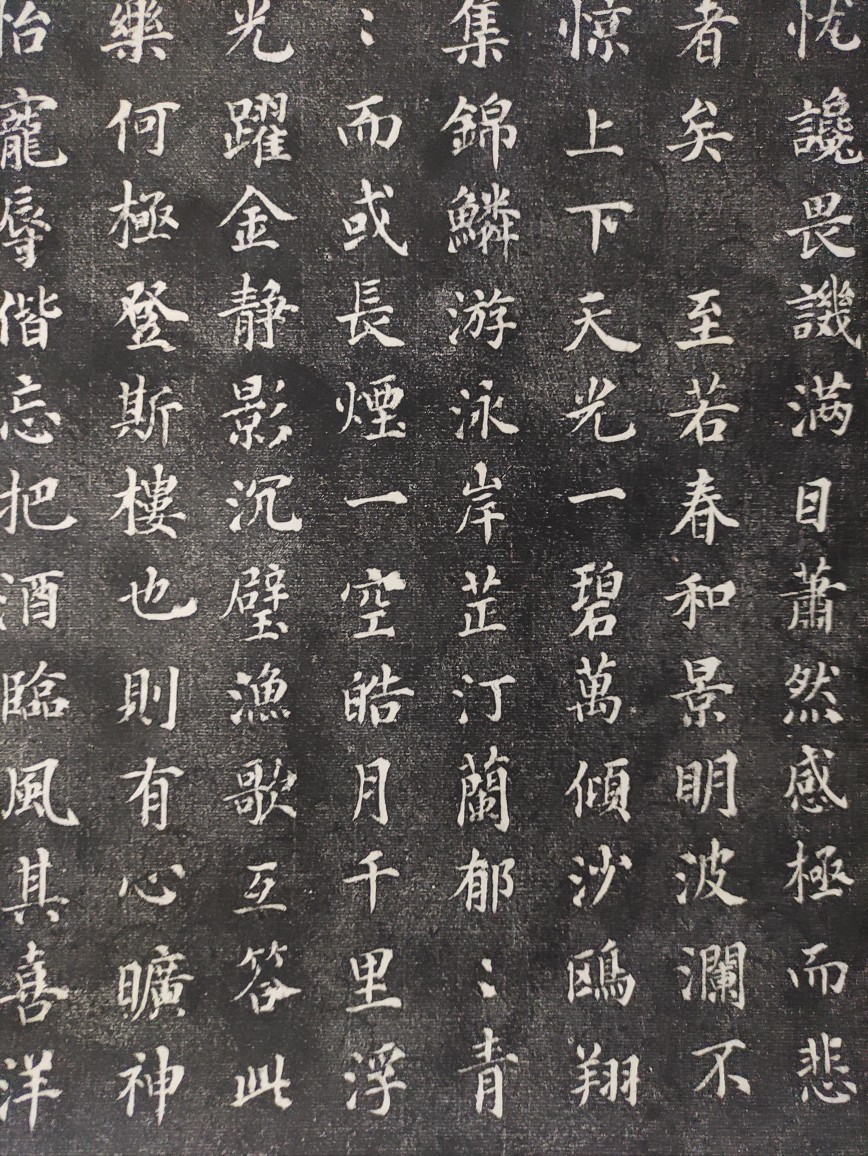 忧讒畏譏满目蕭然感極而悲
者矣 至若春和景明波瀾不
惊上下天光一碧萬傾沙鷗翔
集錦鱗游泳岸芷汀蘭郁:青
:而或長煙一空皓月千里浮
光躍金静影沉璧漁歌互答此
樂何極登斯樓也則有心曠神
怡寵辱偕忘把酒臨風其喜洋